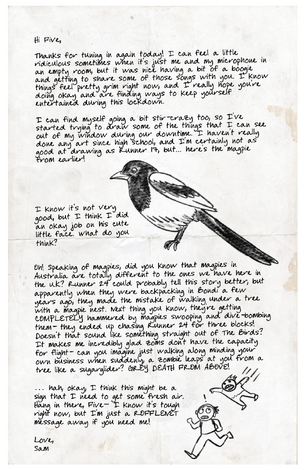 Hi Five,
Thanks for tuning in again today! I can feel a little
ridiculous sometimes when it's just me and my microphone in
an empty room, but it was nice having a bit of a boogie
and getting to share some of those songs with you. I know
things feel pretty grim right now, and I really hope you're
doing okay and are finding ways to keep yourself
entertained during this lockdown.
I can find myself going a bit stir-crazy too, so I've
started trying to draw some of the things that I can see
out of my window during our downtime. I haven't really
done any art since high school, and I'm certainly not as
good at drawing as Runner 14, but... here's the magpie
from earlier!
I know it's not very
good, but I think I did
an okay job on his cute
little face. What do you
think?
Oh! Speaking of magpies, did you know that magpies in
Australia are totally different to the ones we have here in
the UK? Runner 24 could probably tell this story better, but
apparently when they were backpacking in Bondi a few
years ago, they made the mistake of walking under a tree
with a magpie nest. Next thing you know, they're getting
COMPLETELY hammered by magpies swooping and dive-bombing
them- they ended up chasing Runner 24 for three blocks!
Doesn't that sound like something straight out of The Birds?
It makes me incredibly glad zoms don't have the capacity
for flight- can you imagine just walking along minding your
own business when suddenly a zombie leaps at you from a
tree like a sugarglider? GREY DEATH FROM ABOVE!
... hah, okay, I think this might be a
sign that I need to get some fresh air.
Hang in there, Five- I know it's tough
right now, but I'm just a ROFFLENET
message away if you need me!
Love,
Sam